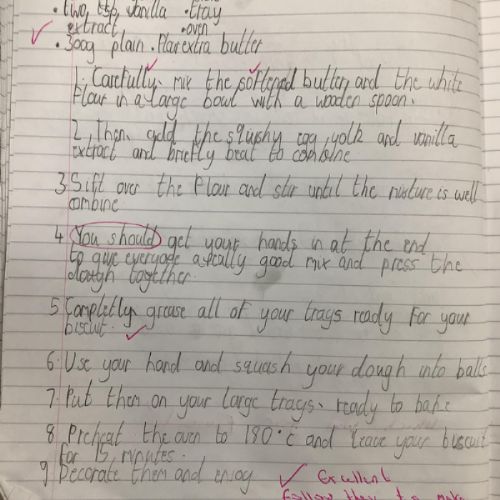 • two tsp vanilla • tray
extract • oven
• 300g plain. Flour extra butter
1. Carefully mix the softened butter and the white
Flour in a large bowl with a wooden spoon.
2. Then, add the squishy egg yolk and vanilla
extract and briefly beat to combine
3. Sift over the Flour and stir until the mixture is well
combine
4. You should get your hands in at the end
to give everyone a really good mix and press the
dough together.
5. Completly grease all of your trays ready For your
biscuit.
6. Use your hand and squash your dough into balls
7. Put them on your large trays, ready to bake
8. Preheat the oven to 180°c and leave your biscuit
for 15 minutes.
9. Decorate them and enjoy
Excellent